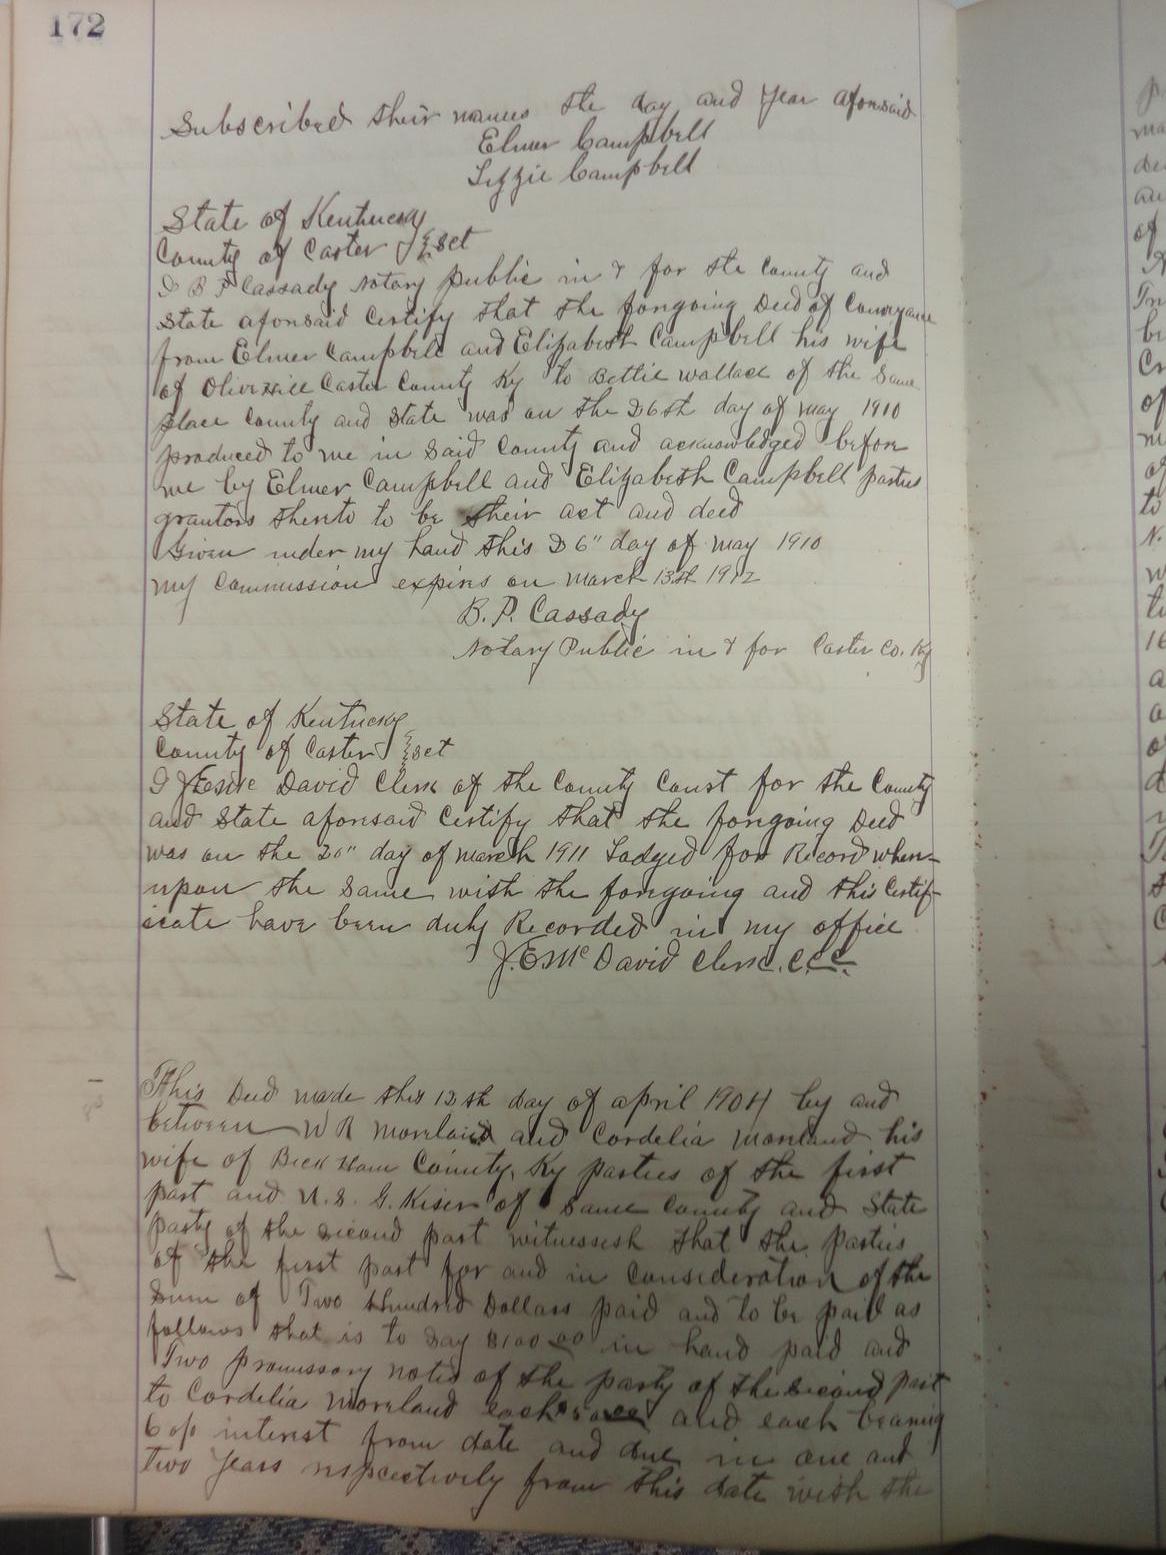 172
Subscribed their names the day and year aforesaid
Elmer Campbell
Lizzie Campbell
State of Kentucky
County of Carter } sct
I B P Cassady Notary public in & for the County and
State aforesaid Certify that the foregoing Deed of Conveyance
from Elmer Campbell and Elizabeth Campbell his wife
of Olive Hill Carter County Ky to Bettie Wallace of the Same
place County and State was on the 26th day of May 1910
produced to me in Said County and acknowledged before
me by Elmer Campbell and Elizabeth Campbell parties
grantors thereto to be their act and deed
Given under my hand this 26" day of May 1910
My Commission expires on March 13th 1912
B. P. Cassady
Notary Public in & for Carter Co. Ky
State of Kentucky
County of Carter } sct
I J E McDavid Clerk of the County Court for the County
and State aforesaid Certify that the foregoing Deed
was on the 20" day of March 1911 Lodged for Record when-
upon the Same with the foregoing and this Certif-
icate have been duly Recorded in my office
J. E. McDavid Clerk. C.C.C.
This Deed made this 12th day of April 1904 by and
between W R Moreland and Cordelia Moreland his
wife of Beckham County, Ky parties of the first
part and U. S. G. Kiser of Same County and State
party of the second part witnesseth that the parties
of the first part for and in Consideration of the
Sum of Two Hundred Dollars paid and to be paid as
follows that is to Say $100.00 in hand paid and
Two promissory notes of the party of the second part
to Cordelia Moreland each and each bearing
6 % interest from date and due in one and
two years respectively from this date with the